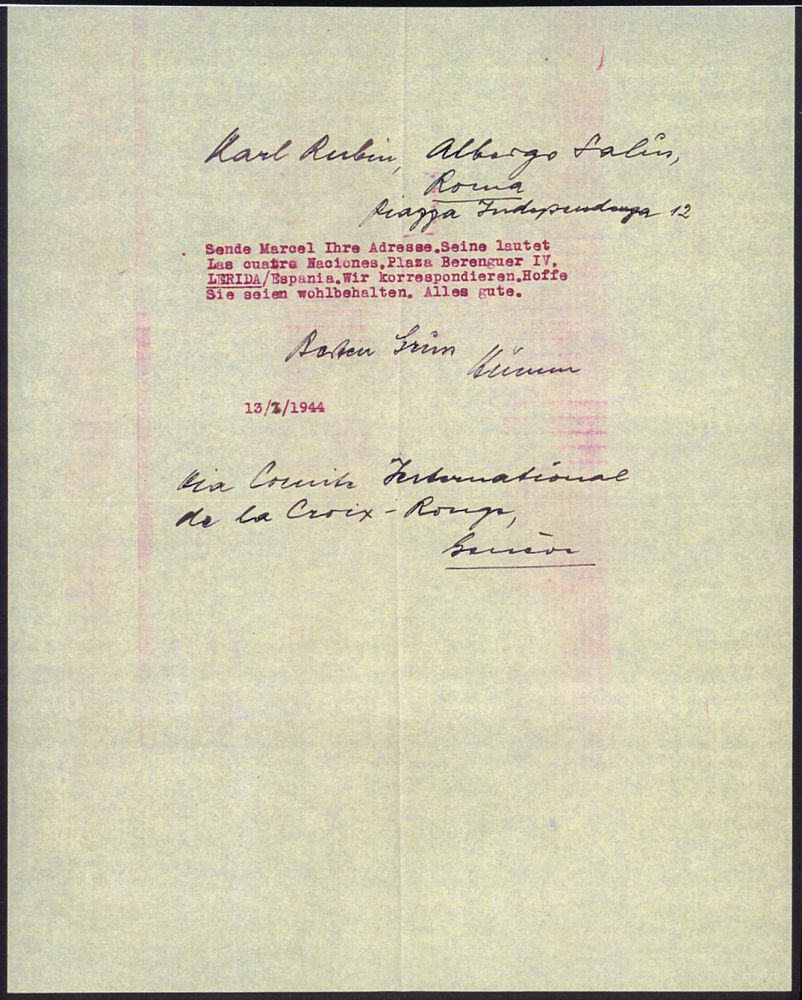 Karl Rubin, Albergo Salus,
Roma
Piazza Independenza 12
Sende Marcel Ihre Adresse.Seine lautet
Las cuatre Naciones,Plaza Berenguer IV,
LERIDA/Espania.Wir korrespondieren.Hoffe
Sie seien wohlbehalten. Alles gute.
Besten Gruss
13/ /1944
via Comité International
de la Croix-Rouge,
Genève